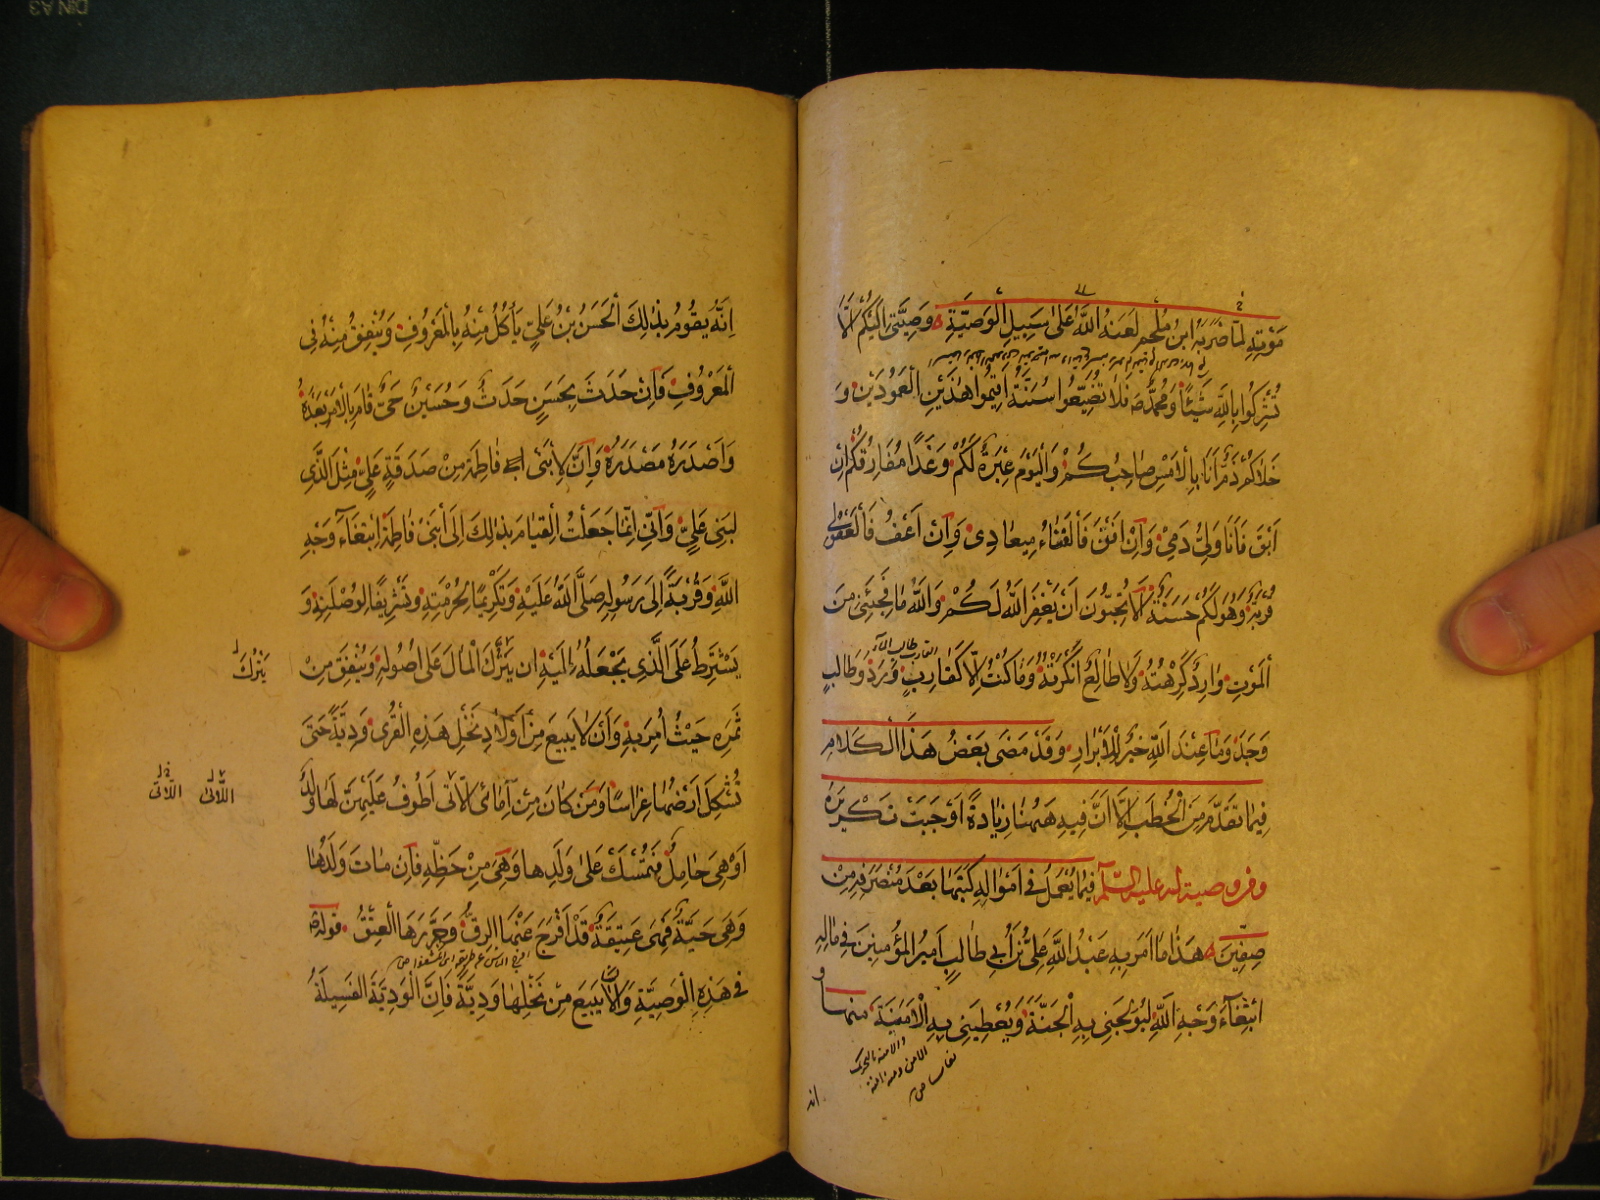 مَوْتِهِ لَمَّا ضَرَبَهُ ابْنُ مُلْجَمٍ لَعَنَهُ اللّٰهُ عَلٰى سَبِيلِ الْوَصِيَّةِ وَصِيَّتِي اِلَيْكُمْ اَلَّا
تُشْرِكُوا بِاللّٰهِ شَيْئًا وَمُحَمَّدٌ ص فَلَا تُضَيِّعُوا سُنَّتَهُ اَقِيمُوا هٰذَيْنِ الْعَمُودَيْنِ وَ
خَلَاكُمْ ذَمٌّ اَنَا بِالْاَمْسِ صَاحِبُكُمْ وَالْيَوْمَ عِبْرَةٌ لَكُمْ وَغَدًا مُفَارِقُكُمْ اِنْ
اَبْقَ فَاَنَا وَلِيُّ دَمِي وَاِنْ اَفْنَ فَالْفَنَاءُ مِيعَادِي وَاِنْ اَعْفُ فَالْعَفْوُ لِي
قُرْبَةٌ وَهُوَ لَكُمْ حَسَنَةٌ اَلَا تُحِبُّونَ اَنْ يَغْفِرَ اللّٰهُ لَكُمْ وَاللّٰهِ مَا فَجَئَنِي مِنَ
الْمَوْتِ وَارِدٌ كَرِهْتُهُ وَلَا طَالِعٌ اَنْكَرْتُهُ وَمَا كُنْتُ اِلَّا كَقَارِبٍ وَرَدَ وَطَالِبٍ
وَجَدَ وَمَا عِنْدَ اللّٰهِ خَيْرٌ لِلْاَبْرَارِ وَقَدْ مَضَى بَعْضُ هَذَا الْكَلَامِ
فِيمَا تَقَدَّمَ مِنَ الْخُطَبِ اِلَّا اَنَّ فِيهِ هٰهُنَا زِيَادَةً اَوْجَبَتْ تَكْرِيرَهُ
ومن وصية له عليه السلام فِيمَا يُعْمَلُ فِي اَمْوَالِهِ كَتَبَهَا بَعْدَ مُنْصَرَفِهِ مِنْ
صِفِّينَ هَذَا مَا اَمَرَ بِهِ عَبْدُ اللّٰهِ عَلِيُّ بْنُ اَبِي طَالِبٍ اَمِيرُ الْمُؤْمِنِينَ فِي مَالِهِ
ابْتِغَاءَ وَجْهِ اللّٰهِ لِيُولِجَنِي بِهِ الْجَنَّةَ وَيُعْطِيَنِي بِهِ الْاَمَنَةَ مِنْهَا وَ
اِنَّهُ يَقُومُ بِذٰلِكَ الْحَسَنُ بْنُ عَلِيٍّ يَأْكُلُ مِنْهُ بِالْمَعْرُوفِ وَيُنْفِقُ مِنْهُ فِي
الْمَعْرُوفِ فَاِنْ حَدَثَ بِحَسَنٍ حَدَثٌ وَحُسَيْنٌ حَيٌّ قَامَ بِالْاَمْرِ بَعْدَهُ
وَاَصْدَرَهُ مَصْدَرَهُ وَاِنَّ لِابْنَيْ فَاطِمَةَ مِنْ صَدَقَةِ عَلِيٍّ مِثْلَ الَّذِي
لِبَنِي عَلِيٍّ وَاِنِّي اِنَّمَا جَعَلْتُ الْقِيَامَ بِذٰلِكَ اِلَى ابْنَيْ فَاطِمَةَ ابْتِغَاءَ وَجْهِ
اللّٰهِ وَقُرْبَةً اِلَى رَسُولِهِ صَلَّى اللّٰهُ عَلَيْهِ وَتَكْرِيمًا لِحُرْمَتِهِ وَتَشْرِيفًا لِوُصْلَتِهِ وَ
يَشْتَرِطُ عَلَى الَّذِي يَجْعَلُهُ اِلَيْهِ ان يَتْرُكَ الْمَالَ عَلَى اُصُولِهِ وَيُنْفِقَ مِنْ
يَتْرُكَ
ثَمَرِهِ حَيْثُ اُمِرَ بِهِ وَاَنْ لَا يَبِيعَ مِنْ اَوْلَادِ نَخْلِ هَذِهِ الْقُرَى وَدِيَّةً حَتَّى
تُشْكِلَ اَرْضُهَا غِرَاسًا وَمَنْ كَانَ مِنْ اِمَائِي اللَّاتِي اَطُوفُ عَلَيْهِنَّ لَهَا وَلَدٌ
اللَّائى اللَّاتى
اَوْ هِيَ حَامِلٌ فَتُمْسَكُ عَلٰى وَلَدِهَا وَهِيَ مِنْ حَظِّهِ فَاِنْ مَاتَ وَلَدُهَا
وَهِيَ حَيَّةٌ فَهِيَ عَتِيقَةٌ قَدْ اَفْرَجَ عَنْهَا الرِّقُّ وَحَرَّرَهَا الْعِتْقُ قوله ع
فِي هَذِهِ الْوَصِيَّةِ وَاَنْ لَا يَبِيعَ مِنْ نَخْلِهَا وَدِيَّةً فَاِنَّ الْوَدِيَّةَ الْفَسِيلَةُ